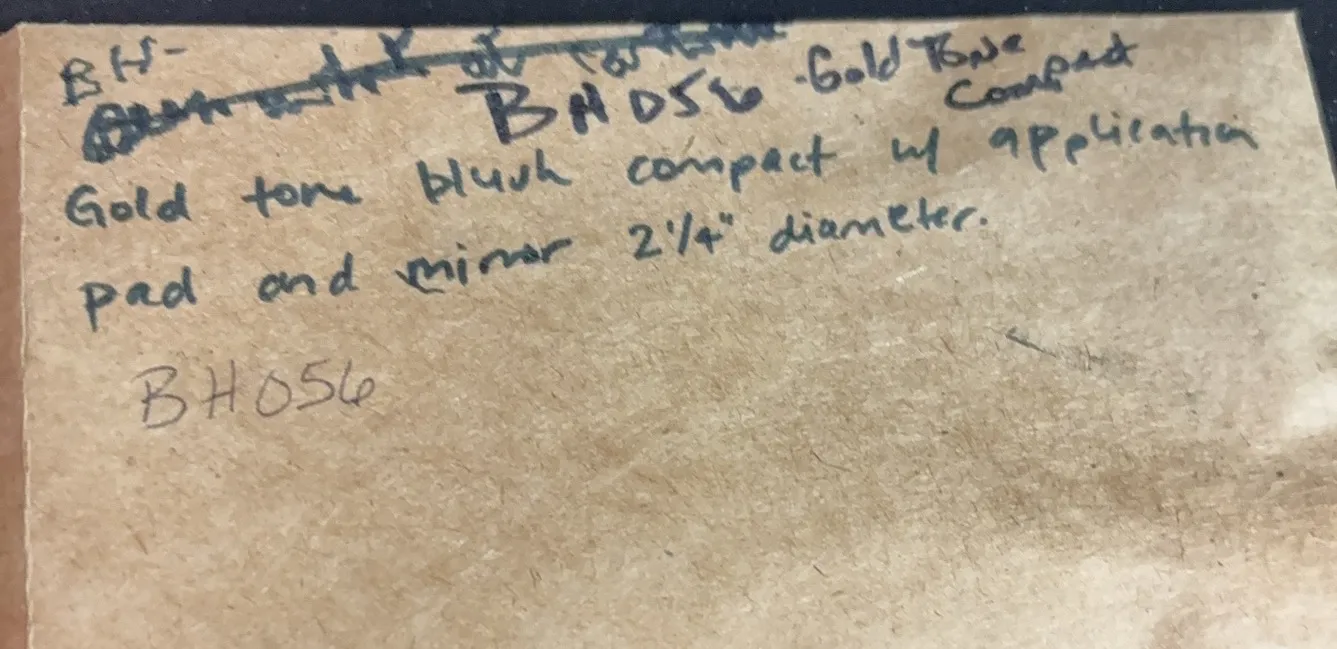 BH-
BH056 - Gold Tone
Compact
Gold tone blush compact w/ application
pad and mirror 2 1/4" diameter.
BH056